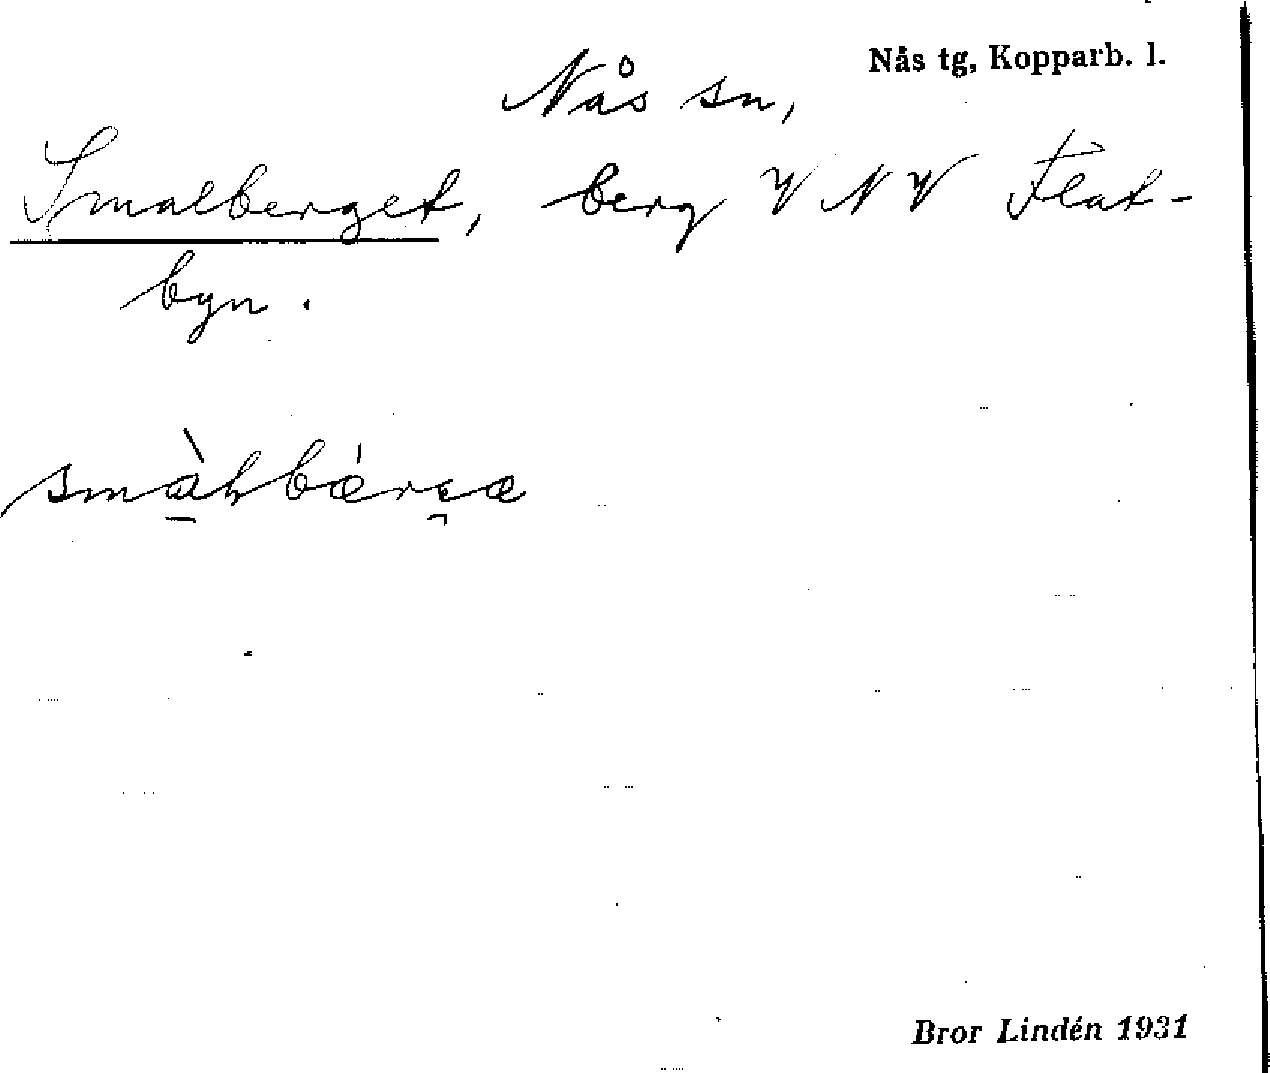 Nås tg, Kopparb. l.
Nås sn,
Smalberget, berg VNV Flat-
byn.
Bror Lindén 1931